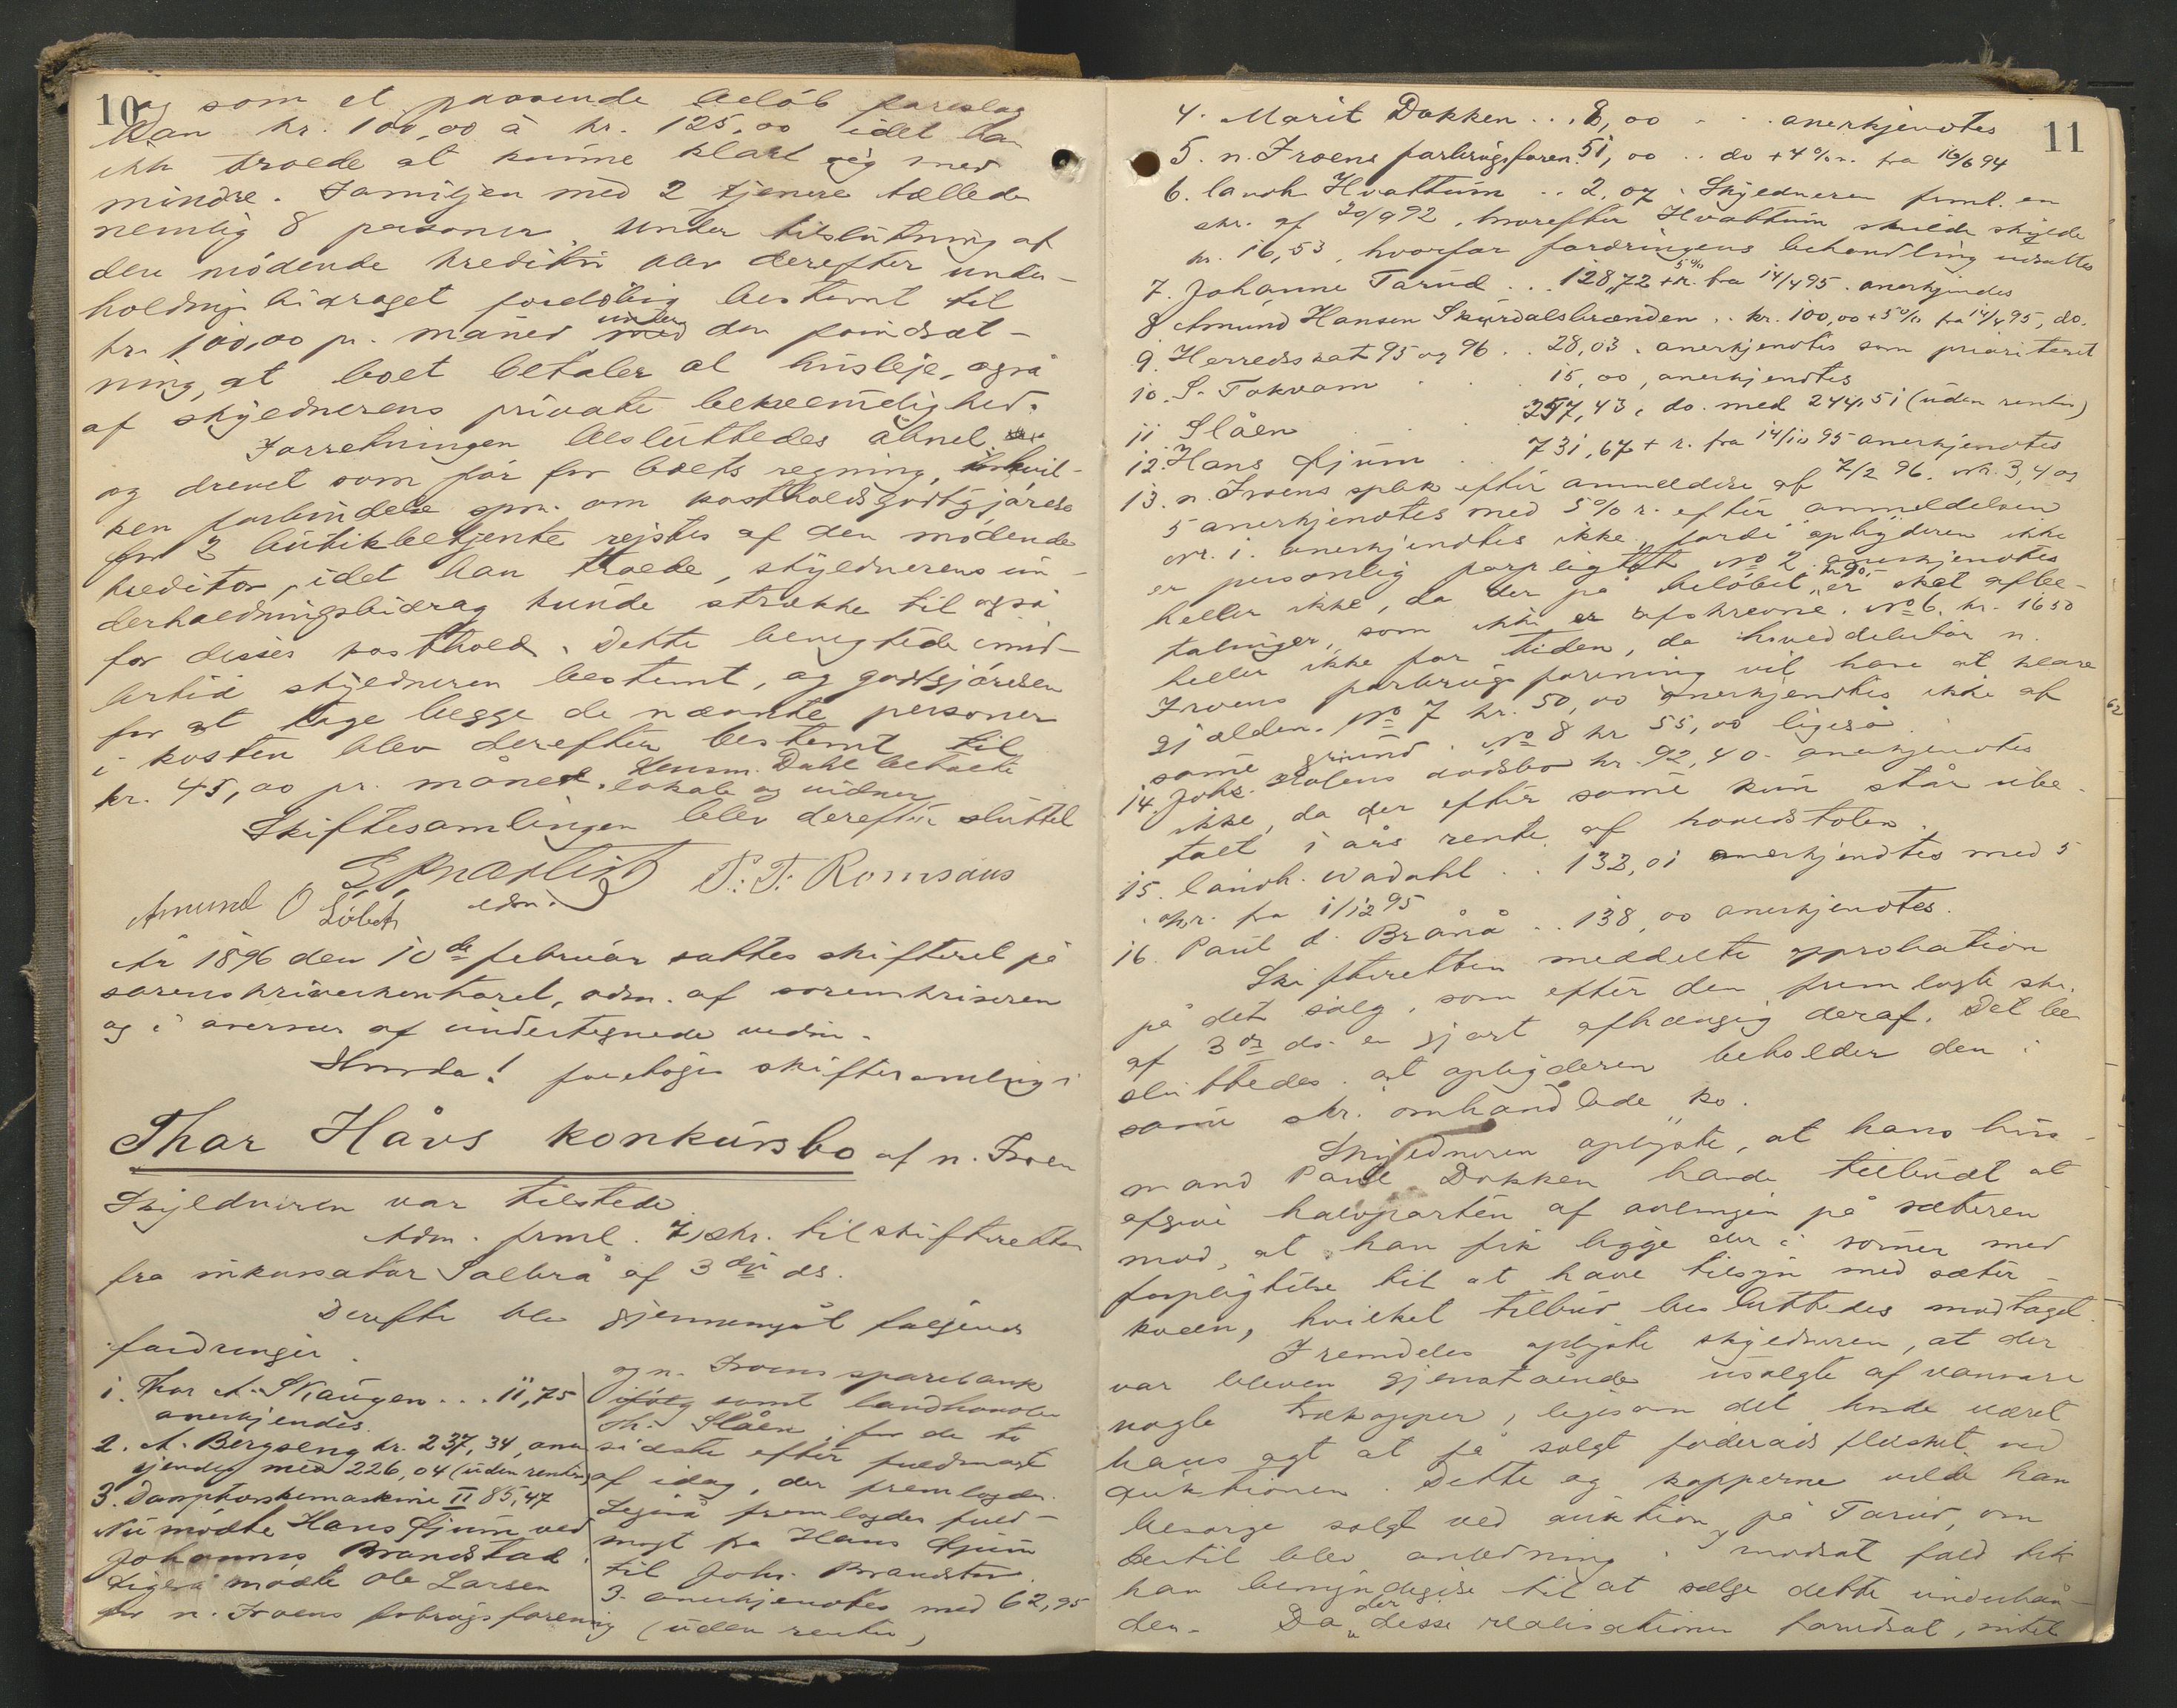 10
og som et passende beløb foreslog
han kr. 100,00 à kr. 125,00 idet han
ikke troede at kunne klare sig med
mindre. Familjen med 2 tjenere tællede
nemlig 8 personer. Under tilslutning af
den mødende kreditor blev derefter under-
holdnings bidraget foreløbig bestemt til
kr. 100,00 pr. måned under den forudsæt-
ning, at boet betaler al husleje, også
af skyldnerens private bekvemmelighed.
Forretningen besluttedes åbnet
og drevet som før for boets regning, i hvil-
ken forbindelse spm. om kostholdsgodtgjørelse
for 2 butikbetjente rejstes af den mødende
kreditor, idet han troede, skyldnerens un-
derholdningsbidrag kunde strække til også
for disses kosthold. Dette benegtede imid-
lertid skyldneren bestemt, og godtgjørelsen
for at tage begge de nævnte personer
i kosten blev derefter bestemt til
kr. 45,00 pr. måned. Lensm. Dahl betalte
lokale og vidner
Skiftesamlingen blev derefter sluttet
P. T. Romsaas
Amund O
År 1896 den 10de februar sattes skifteret på
sorenskriverkontoret, adm. af sorenskriveren
og i overvær af undertegnede vidn.
Hvorda! foretoges skiftesamling i
Thor Håvs konkursbo af n. Froen
Skyldneren var tilstede
Adm. freml. 7, skr. til skifteretten
fra inkassator Saelbrå af 3die ds.
Derefter blev gjennemgåt følgende
fordringer.
1. Thor A. Skaugen . . . 11,75
anerkjendes.
2. A. Bergseng kr. 237,34, aner
kjendes med 226,04 (uden renter)
3. Damptærskemaskine II 85,47
Nu mødte Hans Gjum ved
Johannes Brandstad.
Ligeså mødte Ole Larsen
for n. Froens forbrugsforening
og n. Froens sparebank
samt landhandler
Th. Slåen, for de to
sidste efter fuldmagt
af idag, der fremlagdes.
Ligeså fremlagdes fuld-
magt fra Hans Gjum
til Johs. Brandstad.
3. anerkjendtes med 62,95
(uden renter)
11
4. Marit Dokken . . . 8,00 - - . anerkjendtes
5. n. Froens forbrugsforen. 51,00 . . do + 4% r. fra 16/6 94
6. landh. Hvattum . . 2,07. Skyldneren freml. en
skr. af 20/9 92, hvorefter Hvattum skulde skylde
kr. 16,53, hvorfor fordringens behandling udsattes
7. Johanne Tarud . . . 128,72 + 5% r. fra 14/4 95. anerkjendes
8 Amund Hansen Skurdalsbrænden . . kr. 100,00 + 5% fra 14/4 95, do.
9. Herredsskat 95 og 96 . . 28,03. anerkjendtes som prioriteret
10. S. Tokvam . . . 15,00, anerkjendtes
11 Slåen . . . 257,43, do. med 244,51 (uden renter)
12. Hans Gjum . . 731,67 + r. fra 14/10 95 anerkjendtes
13. n. Froens spbk efter anmeldelse af 7/2 96. Nr. 3, 4 og
5 anerkjendtes med 5% r. efter anmeldelsen
Nr. 1. anerkjendtes ikke, fordi opbyderen ikke
er personlig forpligtet No 2 anerkjendtes
heller ikke, da der på beløbet er sket afbe-
talinger, som ikke er afskrevne. No 6. kr. 1650
heller ikke for tiden, da hoveddebitor n.
Froens forbrugsforening vil have at klare
gjælden. No 7 kr. 50,00 anerkjendtes ikke af
samme grund. No 8 kr 55,00 ligeså.
14. Johs. Stolens dødsbo kr. 92,40 - anerkjendtes
ikke, da der efter samme kun står ube-
talt 1 års rente af hovedstolen.
15. landh. Wadahl . . 132,01 anerkjendtes med 5
% r. fra 1/12 95
16. Paul d. Brånå . . 138,00 anerkjendtes.
Skifteretten meddelte approbation
på det salg, som efter den fremlagte skr.
af 3die ds. er gjort afhængig deraf. Det be
sluttedes, at opbyderen beholder den i
samme skr. omhandlede ko.
Skyldneren oplyste, at hans hus-
mand Paul Dokken havde tilbudt at
afgive halvparten af avlingen på sæteren
mod, at han fik ligge der i sommer med
forpligtelse til at have tilsyn med sæter-
kveen, hvilket tilbud besluttedes modtaget.
Fremdeles oplyste skyldneren, at der
var bleven gjenstående usolgte af vannare
nogle trækopper, ligesom det havde været
hans agt at få solgt føderåds flesket ved
auktionen. Dette og kopperne vilde han
besørge solgt ved auktion på Tarud, om
dertil blev anledning. I modsat fald fik
han bemyndigelse til at sælge dette underhån-
den. Da der disse realisationer forudsat, intet
62